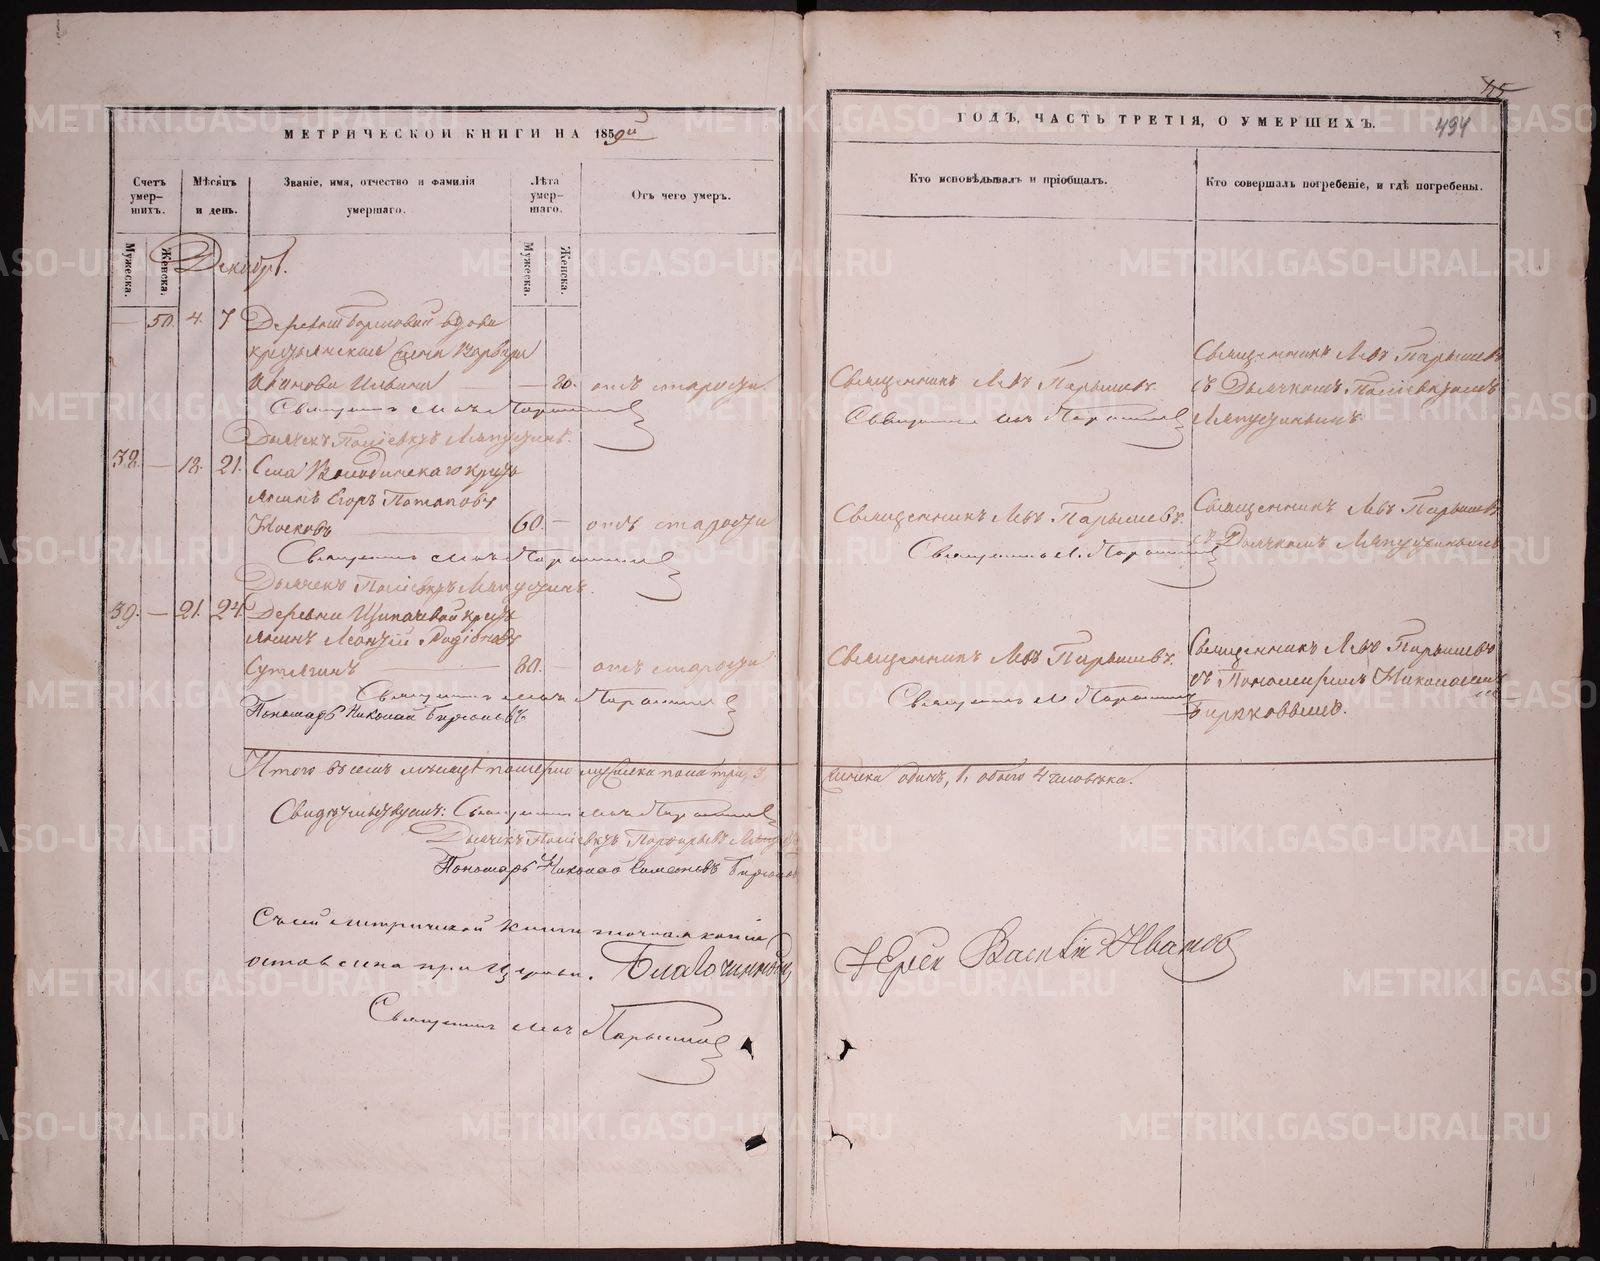 МЕТРИЧЕСКОЙ КНИГИ НА 1859й
Счетъ умер-шихъ.
Мѣсяцъ и день.
Званіе, имя, отчество и фамилія умершаго.
Лѣта умер-шаго.
Отъ чего умеръ.
Мужеска.
Женска.
Мужеска.
Женска.
Декабрь.
— 50. 4. 7 Деревни вдова
крестьянская жена Варвара
Иванова Ильина — — 80. отъ старости
Священникъ Левъ Парышевъ
Дьячекъ Поліевктъ Ляпустинъ.
38. — 18. 21. Села Колюткинскаго кресть
янинъ Егоръ Потаповъ
Московъ 60. — отъ старости
Священникъ Левъ Парышевъ
Дьячекъ Поліевктъ Ляпустинъ.
39. — 21. 24. Деревни Щипачевой кресть
янинъ Леонтій Родіоновъ
Сутягинъ — 80. — отъ старости
Священникъ Левъ Парышевъ
Пономарь Николай Бирюковъ
Итого въ семъ мѣсяцѣ померло мужеска пола три, 3
Свидѣтельствуемъ: Священникъ Левъ Парышевъ
Дьячекъ Поліевктъ Порфирьевъ
Пономарь Николай Симеоновъ Бирюковъ
Съ сей метрической книги точная копія
оставлена при церкви. Благочинный,
Священникъ Левъ Парышевъ
115
ГОДЪ, ЧАСТЬ ТРЕТІЯ, О УМЕРШИХЪ.
494
Кто исповѣдывалъ и пріобщалъ.
Кто совершалъ погребеніе, и гдѣ погребены.
Священникъ Левъ Парышевъ.
Священникъ Левъ Парышевъ
Священникъ Левъ Парышевъ
съ Дьячкомъ Поліевктомъ
Ляпустинымъ.
Священникъ Левъ Парышевъ.
Священникъ Л. Парышевъ
Священникъ Левъ Парышевъ
съ Дьячкомъ Ляпустинымъ
Священникъ Левъ Парышевъ.
Священникъ Л. Парышевъ
Священникъ Левъ Парышевъ
съ Пономаремъ Николаемъ
Бирюковымъ.
женска одинъ, 1, обоего 4 человѣка.
Іерей Василій Ивановъ
METRIKI.GASO-URAL.RU